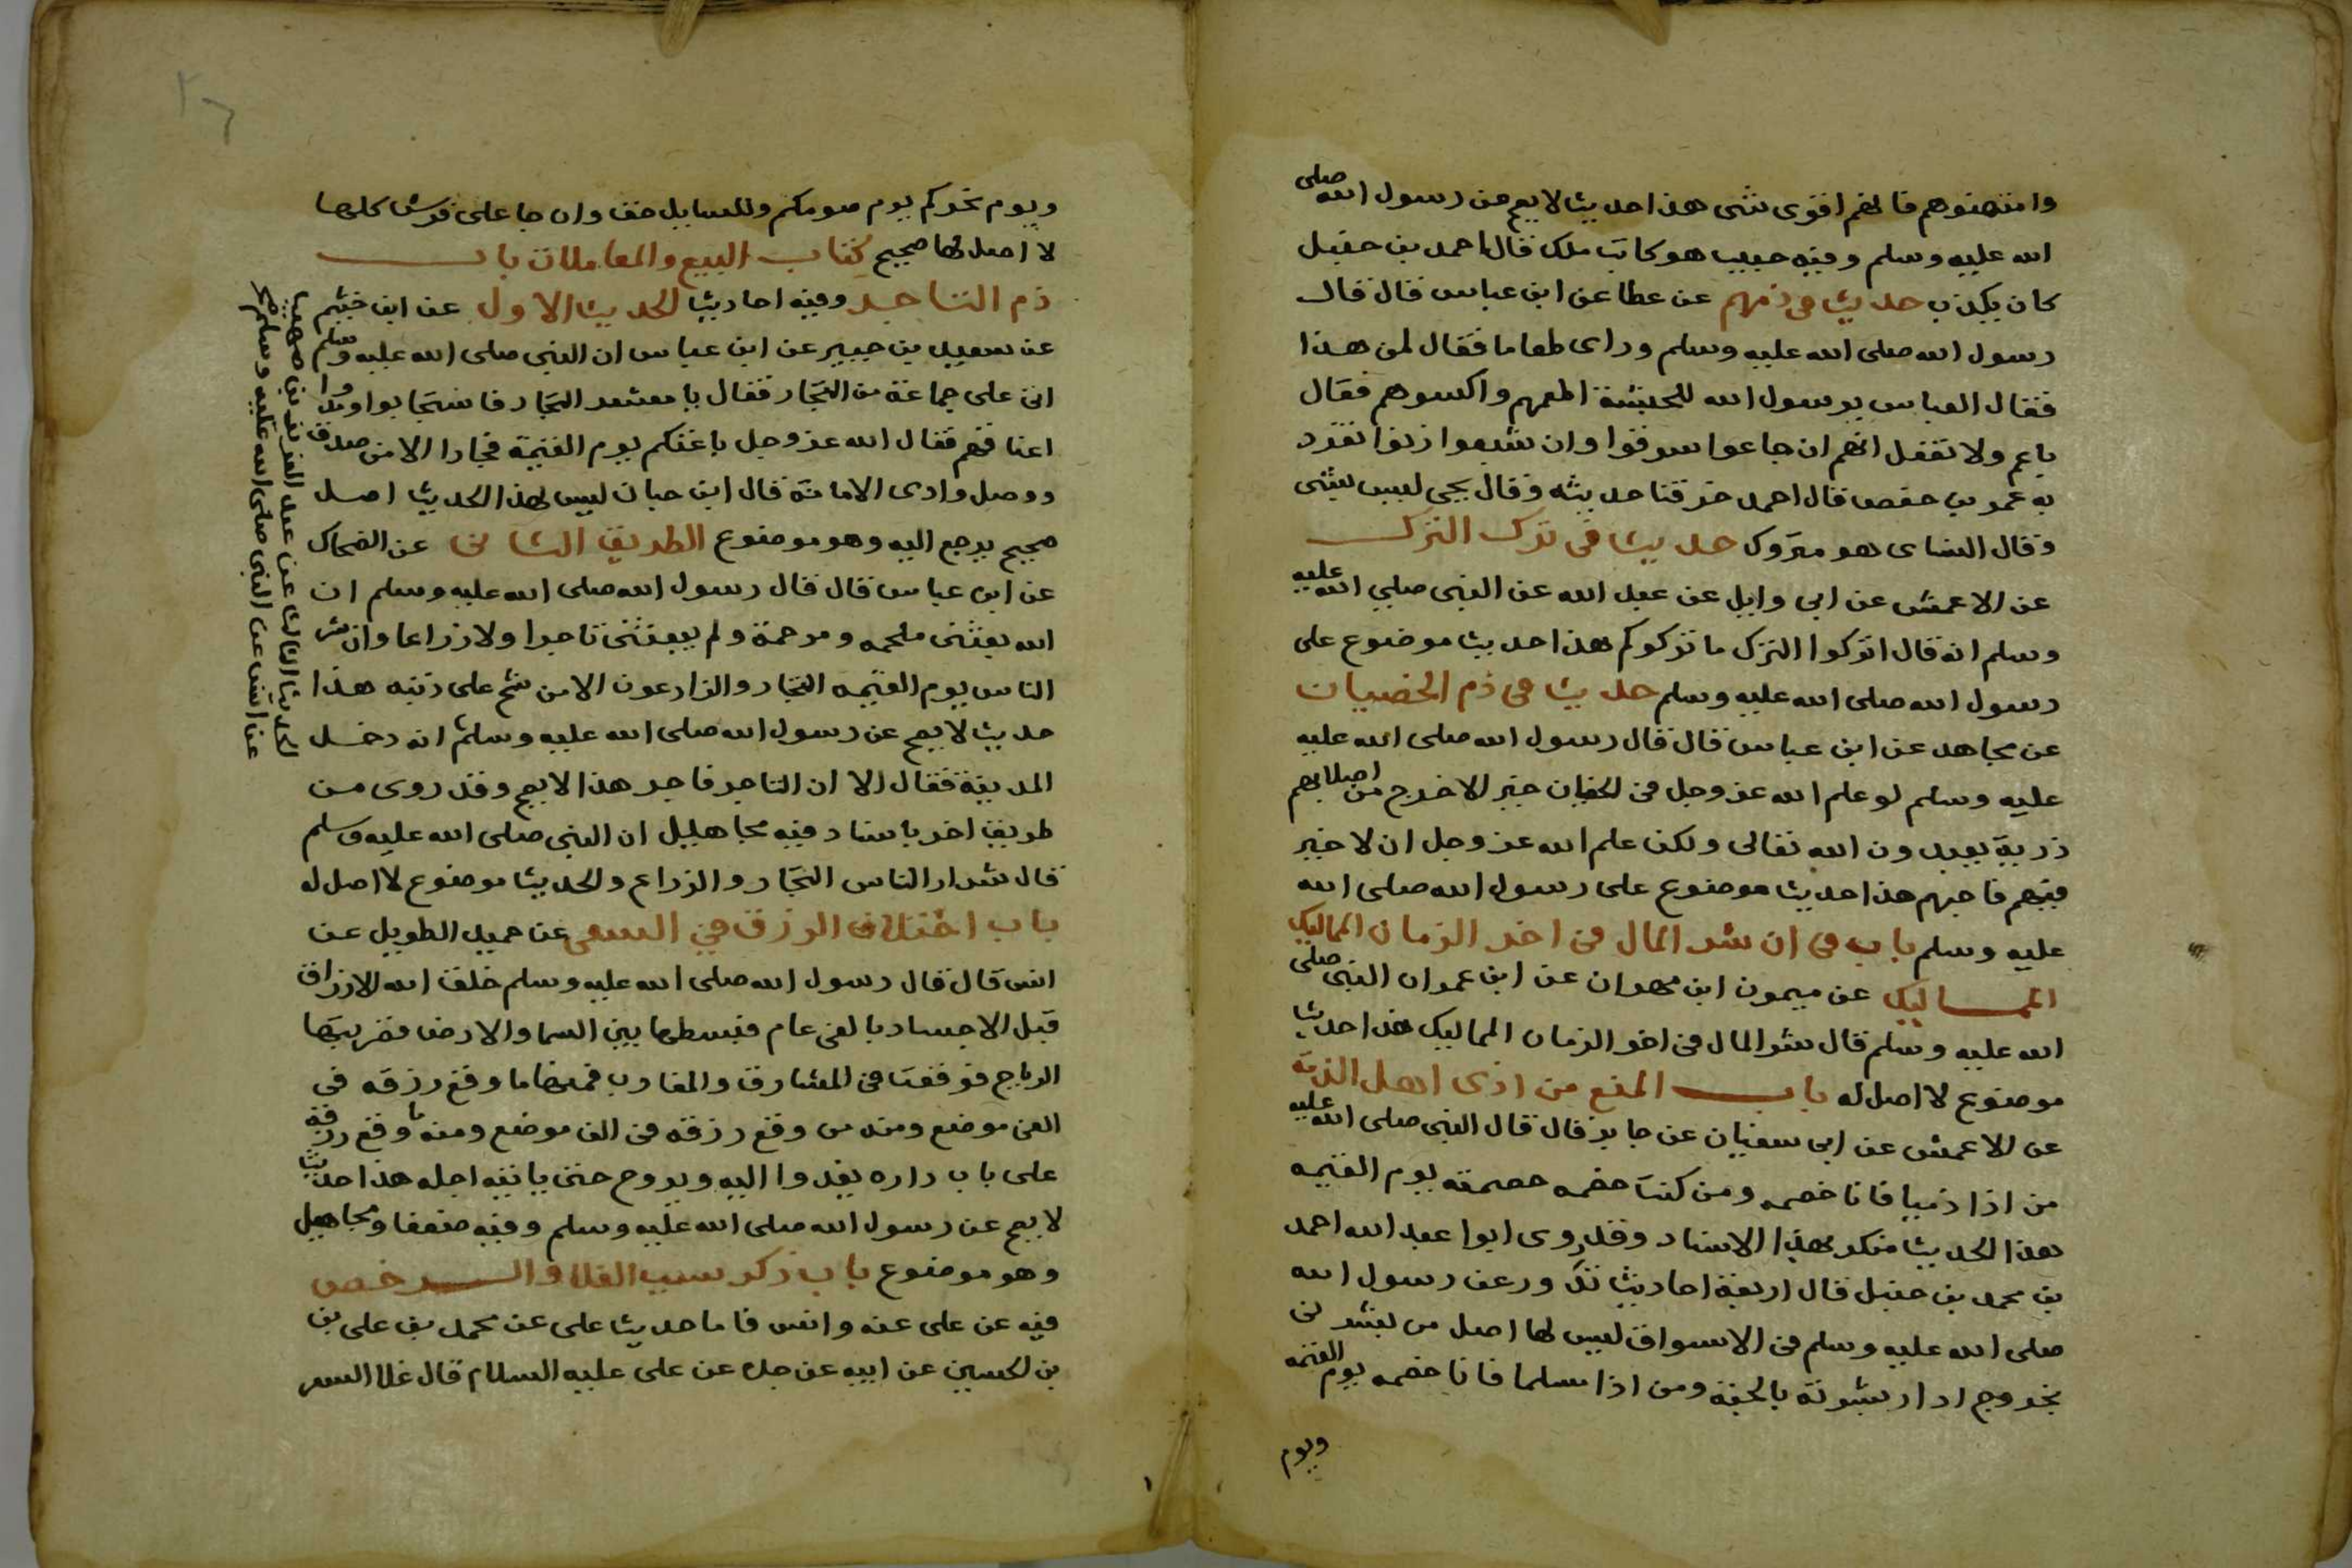 وامتهنوهم فانهم اقوى شى هذا حديث لا يصح عن رسول الله صلى
الله عليه وسلم وفيه حبيب هو كاتب ملك قال احمد بن حنبل
كان يكذب حديث فى ذمهم عن عطا عن ابن عباس قال قال
رسول الله صلى الله عليه وسلم وراى طعاما فقال لمن هذا
فقال العباس يرسول الله للحبشة اطعمهم واكسوهم فقال
ياعم ولا تفعل انهم ان جاعوا سرقوا وان شبعوا زنوا تفرد
به عمر بن حفص قال احمد خرقنا حديثه وقال يحى ليس بشى
وقال النساى هو متروك حديث فى ترك الترك
عن الاعمش عن ابى وايل عن عبد الله عن النبى صلى الله عليه
وسلم انه قال اتركوا الترك ما تركوكم هذا حديث موضوع على
رسول الله صلى الله عليه وسلم حديث فى ذم الخصيان
عن مجاهد عن ابن عباس قال قال رسول الله صلى الله عليه
عليه وسلم لو علم الله عز وجل فى الخصيان خير لاخرج من اصلابهم
ذرية يعبدون الله تعالى ولكن علم الله عز وجل ان لا خير
فيهم فاجبهم هذا حديث موضوع على رسول الله صلى الله
عليه وسلم باب فى ان شر المال فى اخر الزمان المماليك
المماليك عن ميمون ابن مهران عن ابن عمر ان النبى صلى
الله عليه وسلم قال شر المال فى اخر الزمان المماليك هذا حديث
موضوع لا اصل له باب المنع من اذى اهل الذمة
عن الاعمش عن ابى سفيان عن جابر قال قال النبى صلى الله عليه
من اذا ذميا فانا خصمه ومن كنت خصمه خصمته يوم القيمه
هذا الحديث منكر بهذا الاسناد وقد روى ابوا عبد الله احمد
بن محمد بن حنبل قال اربعة احاديث تدور عن رسول الله
صلى الله عليه وسلم فى الاسواق ليس لها اصل من بشرنى
بخروج ادار بشرته بالجنة ومن اذا مسلما فانا خصمه يوم القيمه
ويوم
ويوم نحركم يوم صومكم وللسايل حق وان جا على فرس كلها
لا اصل لها صحيح كتاب البيع والمعاملات باب
ذم التاجر وفيه احاديث الحديث الاول عن ابن خثيم
عن سعيد بن جبير عن ابن عباس ان النبى صلى الله عليه وسلم
اتى على جماعة من التجار فقال يا معشر التجار فاستجابوا ومدوا
اعناقهم فقال الله عز وجل باعثكم يوم القيمة فجارا الا من صدق
ووصل وادى الامانة قال ابن حبان ليس لهذا الحديث اصل
صحيح يرجع اليه وهو موضوع الطريق الثانى عن الضحاك
عن ابن عباس قال قال رسول الله صلى الله عليه وسلم ان
الله بعثنى ملحمه ومرحمة ولم يبعثنى تاجرا ولا زراعا وان شر
الناس يوم القيمه التجار والزارعون الا من شح على دينه هذا
حديث لا يصح عن رسول الله صلى الله عليه وسلم انه دخل
المدينة فقال الا ان التاجر فاجر هذا لا يصح وقد روى من
طريق اخر باسناد فيه مجاهليل ان النبى صلى الله عليه وسلم
قال شرار الناس التجار والزراع والحديث موضوع لا اصل له
باب اختلاف الرزق فى السعى عن حميد الطويل عن
انس قال قال رسول الله صلى الله عليه وسلم خلق الله الارزاق
قبل الاجساد بالفى عام فبسطها بين السما والارض فضربتها
الرياح فوقعت فى المشارق والمغارب فمنها ما وقع رزقه فى
الفى موضع ومنه من وقع رزقه فى الف موضع ومنه ما وقع رزقه
على باب داره يغدوا اليه ويروح حتى ياتيه اجله هذا حديث
لا يصح عن رسول الله صلى الله عليه وسلم وفيه ضعفا ومجاهيل
وهو موضوع باب ذكر سبب الغلا والرخص
فيه عن على عنه وانس فاما حديث على عن محمد بن على بن
بن الحسين عن ابيه عن جده عن على عليه السلام قال غلا السعر
الحديث الثالث عن عبد العزيز بن صهيب
عن انس عن النبى صلى الله عليه وسلم صح